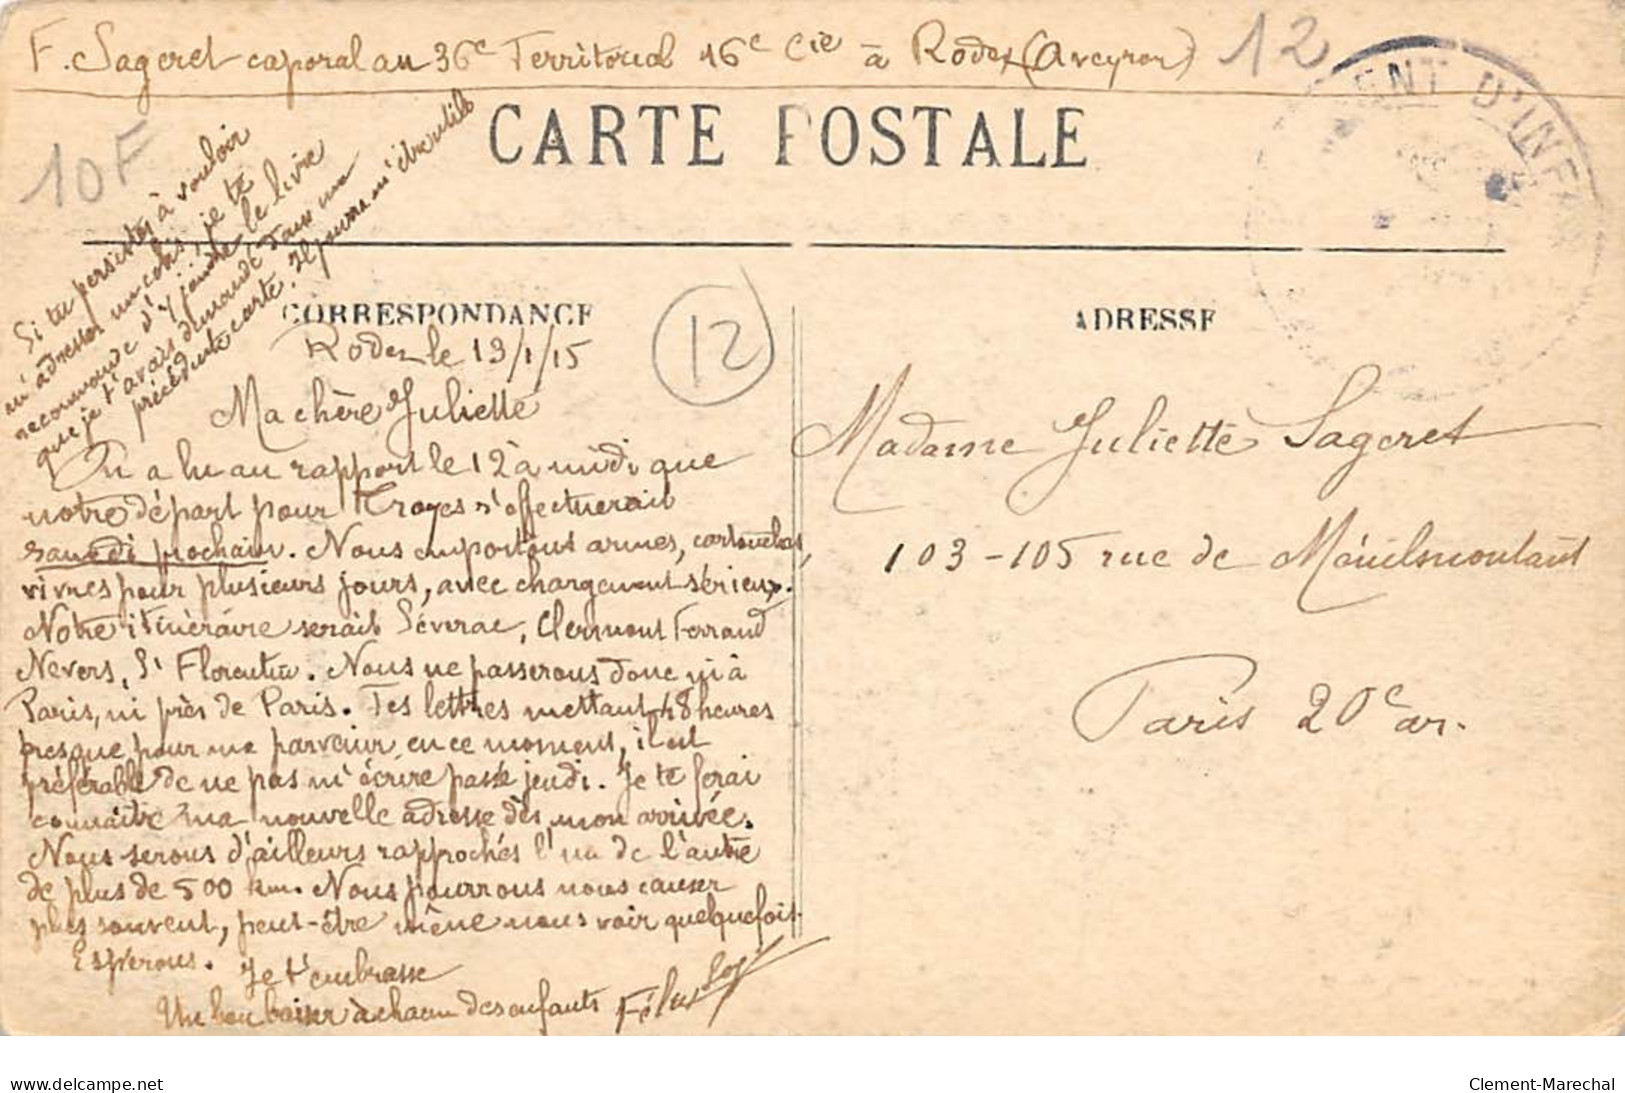 F. Sageret caporal au 36e Territorial 16e Cie à Rodez (Aveyron)
12
10F
CARTE POSTALE
ENT D'INFA
Si tu persistes à vouloir
m'adresser un colis, je te
recommande d'y joindre le livre
que je t'avais demandé dans ma
précédente carte. Il pourra m'être utile
CORRESPONDANCE
12
ADRESSE
Rodez le 13/1/15
Ma chère Juliette
On a lu au rapport le 12 à midi que
notre départ pour Troyes s'effectuerait
samedi prochain. Nous emportons armes, cartouches,
vivres pour plusieurs jours, avec chargement sérieux.
Notre itinéraire serait Séverac, Clermont Ferrand
Nevers, St Florentin. Nous ne passerons donc ni à
Paris, ni près de Paris. Tes lettres mettant 48 heures
presque pour me parvenir en ce moment, il est
préférable de ne pas m'écrire passé jeudi. Je te ferai
connaître ma nouvelle adresse dès mon arrivée.
Nous serons d'ailleurs rapprochés l'un de l'autre
de plus de 500 km. Nous pourrons nous causer
plus souvent, peut-être même nous voir quelquefois.
Espérons. Je t'embrasse
Un bon baiser à chacun des enfants
Madame Juliette Sageret
103-105 rue de Ménilmontant
Paris 20e ar.
delcampe.net
Clement-Marechal